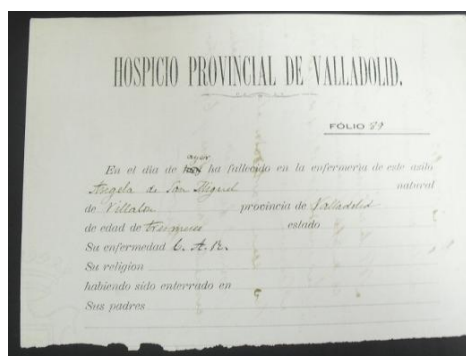 HOSPICIO PROVINCIAL DE VALLADOLID.
FOLIO 89
ayer
En el dia de hoy ha fallecido en la enfermería de este asilo
Angela de San Miguel natural
de Villalon provincia de Valladolid
de edad de estado
Su enfermedad C. A. R.
Su religion
habiendo sido enterrado en
Sus padres